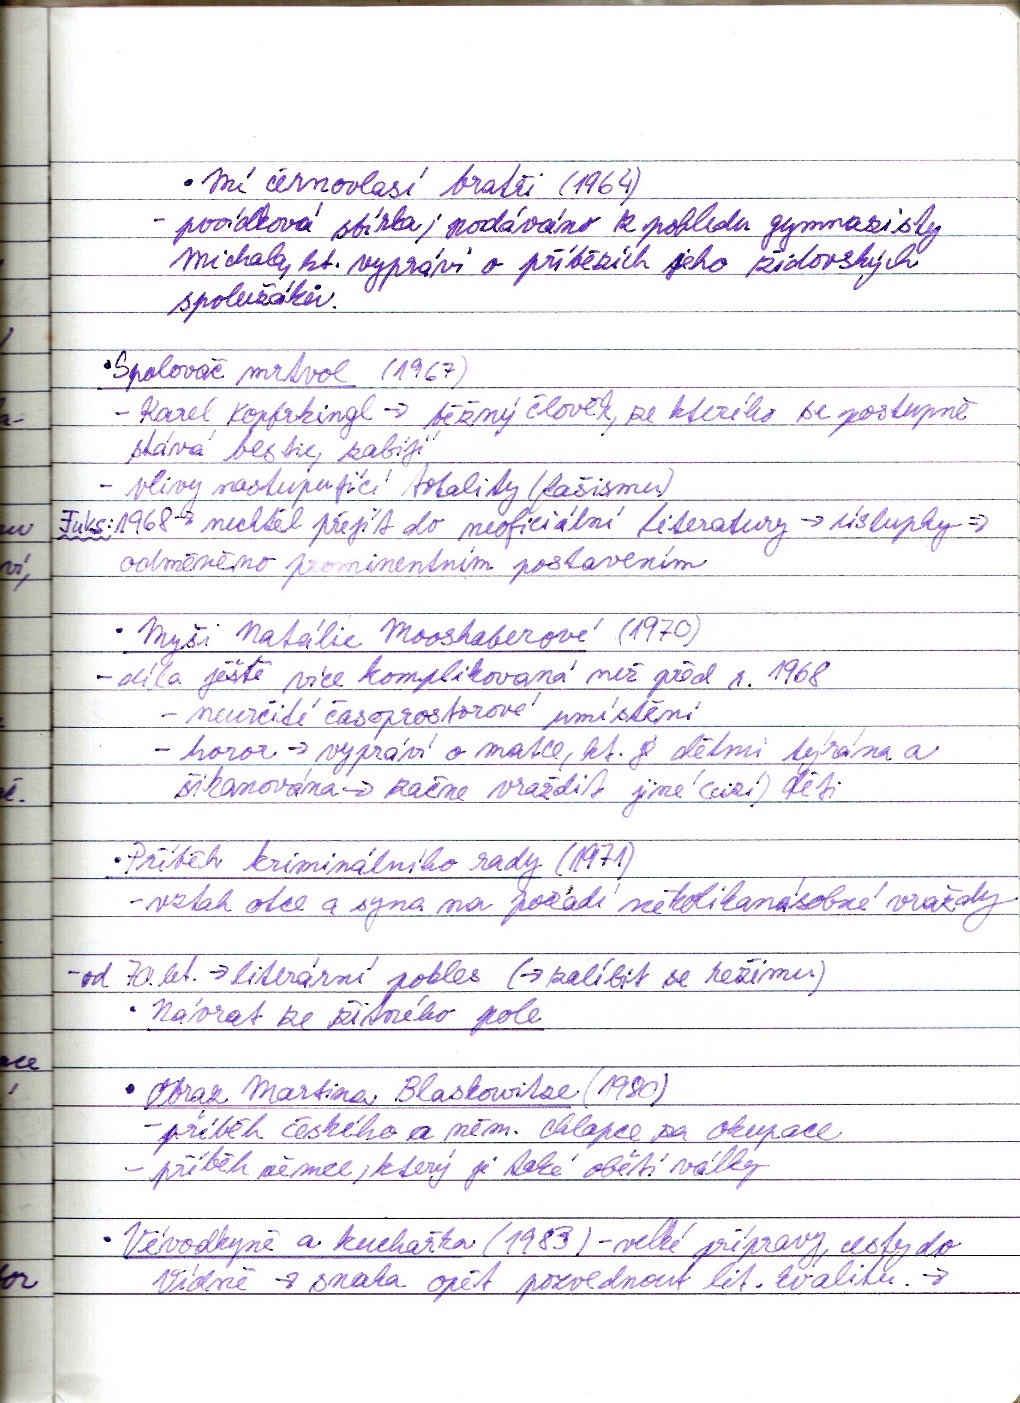 • Mí černovlasí bratři (1964)
- povídková sbírka, podáváno z pohledu gymnazisty
Michala, kt. vypráví o příbězích jeho židovských
spolužáků.
• Spalovač mrtvol (1967)
- Karel Kopfrkingl → běžný člověk, ze kterého se postupně
stává bestie, zabíjí
- vlivy nastupující totality (fašismu)
Fuks: 1968 → nechtěl přejít do neoficiální literatury → ústupky →
odměněno prominentním postavením
• Myši Natálie Mooshaberové (1970)
- díla ještě více komplikovaná než před r. 1968
- neurčité časoprostorové umístění
- horor → vypráví o matce, kt. je dětmi týrána a
šikanována → začne vraždit jiné (cizí) děti
• Příběh kriminálního rady (1971)
- vztah otce a syna na pozadí několikanásobné vraždy
- od 70. let. → literární pokles (→ zalíbit se režimu)
• Návrat ze žitného pole
• Obraz Martina Blaskowitze (1980)
- příběh českého a něm. chlapce za okupace
- příběh němce, který je také obětí války
• Vévodkyně a kuchařka (1983) - velké přípravy, cesty do
Vídně → snaha opět pozvednout lit. kvalitu. →